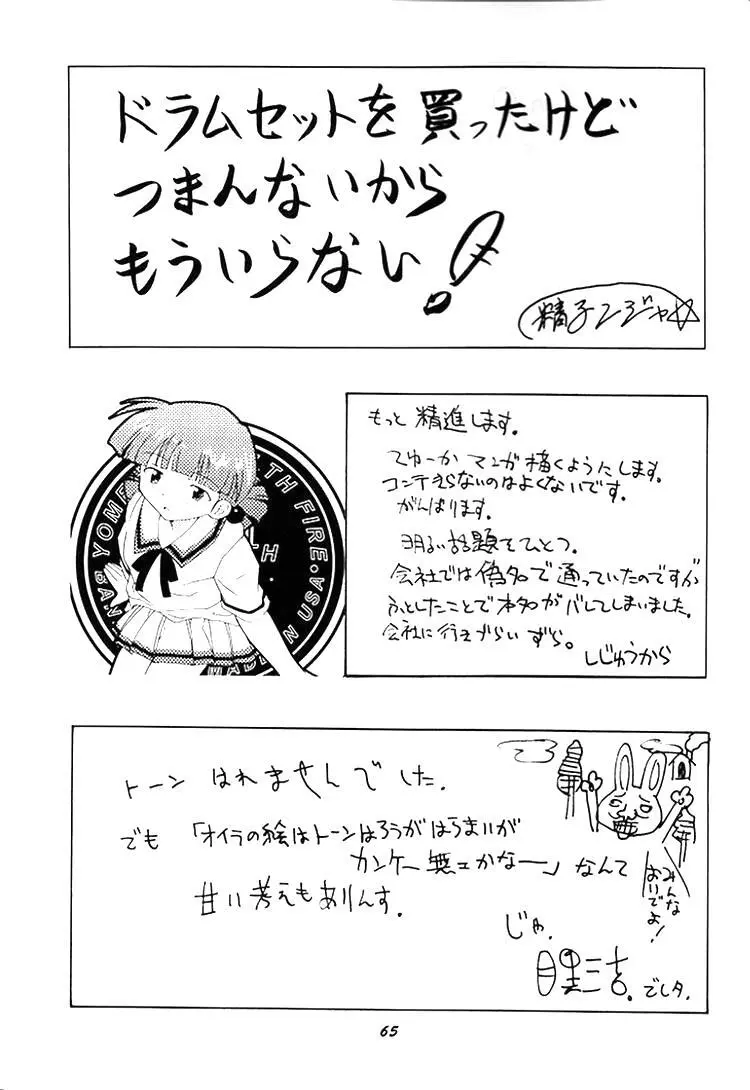 ドラムセットを買ったけど
つまんないから
もういらない!
精子ニンジャ☆
もっと精進します。
てゆーかマンガ描くようにします。
コンテきらないのはよくないです。
がんばります。
明るい話題をひとつ。
会社では偽名で通っていたのですが
ふとしたことで本名がバレてしまいました。
会社に行きづらいずら。
しじゅうから
YOME
TH FIRE
LH
MADE IN USA
トーンはれませんでした。
でも「オイラの絵はトーンはろうがはらまいが
カンケー無ェかなー」なんて
甘い考えもありんす。
みんな
おいでよ!
じゃ、
三吉。でしタ.
65